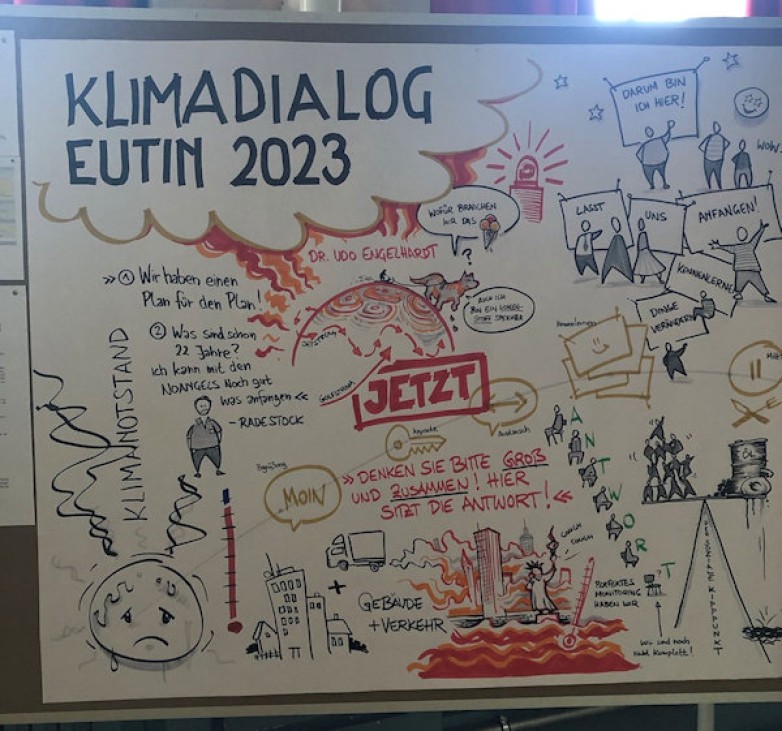 KLIMADIALOG
EUTIN 2023
DARUM BIN
ICH HIER!
WOW
WOFÜR BRAUCHEN
WIR DAS
?
DR. UDO ENGELHARDT
LASST
UNS
ANFANGEN!
KENNENLERNEN
DINGE
VERÄNDERN
>> ① Wir haben einen
Plan für den Plan!
② Was sind schon
22 Jahre?
ich kann mit den
NOANGELS Noch gut
was anfangen <<
- RADESTOCK
AUCH ICH
BIN EIN
SPEICHER
JETSTREAM
GOLFSTROM
JETZT
KLIMANOTSTAND
Begrüßung
MOIN
keynote
Austausch
>> DENKEN SIE BITTE GROß
UND ZUSAMMEN! HIER
SITZT DIE ANTWORT! <<
ANTWORT
ÖL
+
GEBÄUDE
+ VERKEHR
PERFEKTES
MONITORING
HABEN WIR
Wir sind noch
nicht komplett!
DER SOZIALE KIPPPUNKT